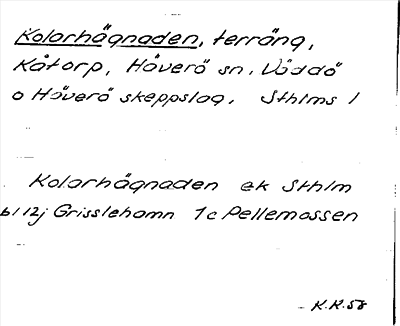 Kolarhägnaden, terräng,
Kåtorp, Häverö sn, Väddö
o Häverö skeppslag, Sthlms l
Kolarhägnaden ek Sthlm
bl 12j Grisslehamn 1c Pellemossen
K.R.58